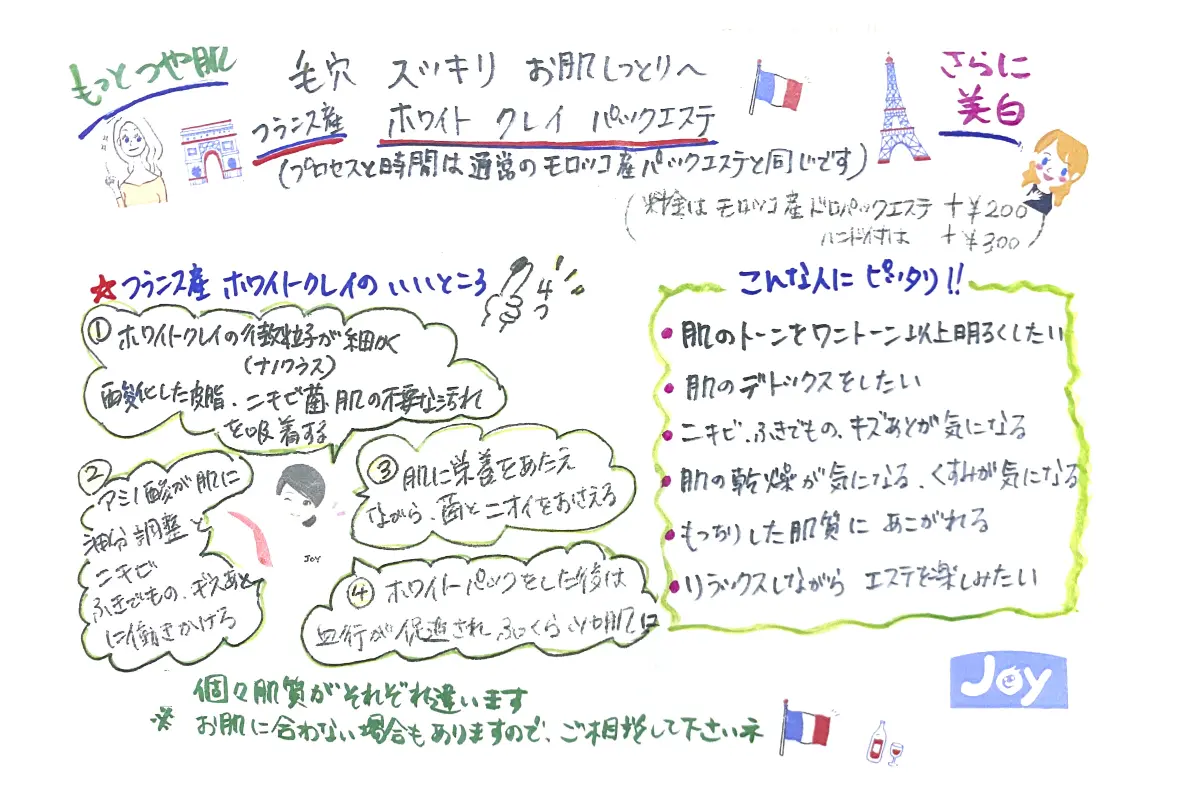 もっとつや肌
毛穴 スッキリ お肌しっとりへ
フランス産 ホワイト クレイ パックエステ
(プロセスと時間は通常のモロッコ産パックエステと同じです)
さらに
美白
(料金はモロッコ産ドロパックエステ +¥200
ハンド付は +¥300)
☆フランス産 ホワイトクレイの いいところ
4つ
① ホワイトクレイの微粒子が細かく
(ナノクラス)
酸化した皮脂、ニキビ菌、肌の不要な汚れ
を吸着する
② アミノ酸が肌に
油分調整と
ニキビ
ふきでもの、キズあと
に働きかける
③ 肌に栄養をあたえ
ながら、菌とニオイをおさえる
④ ホワイトパックをした後は
血行が促進され ふっくらツヤ肌に
こんな人に ピッタリ!!
• 肌のトーンをワントーン以上明るくしたい
• 肌のデトックスをしたい
• ニキビ、ふきでもの、キズあとが気になる
• 肌の乾燥が気になる、くすみが気になる
• もっちりした肌質に あこがれる
• リラックスしながら エステを楽しみたい
個々肌質がそれぞれ違います
※ お肌に合わない場合もありますので、ご相談して下さいネ
JOY
Joy